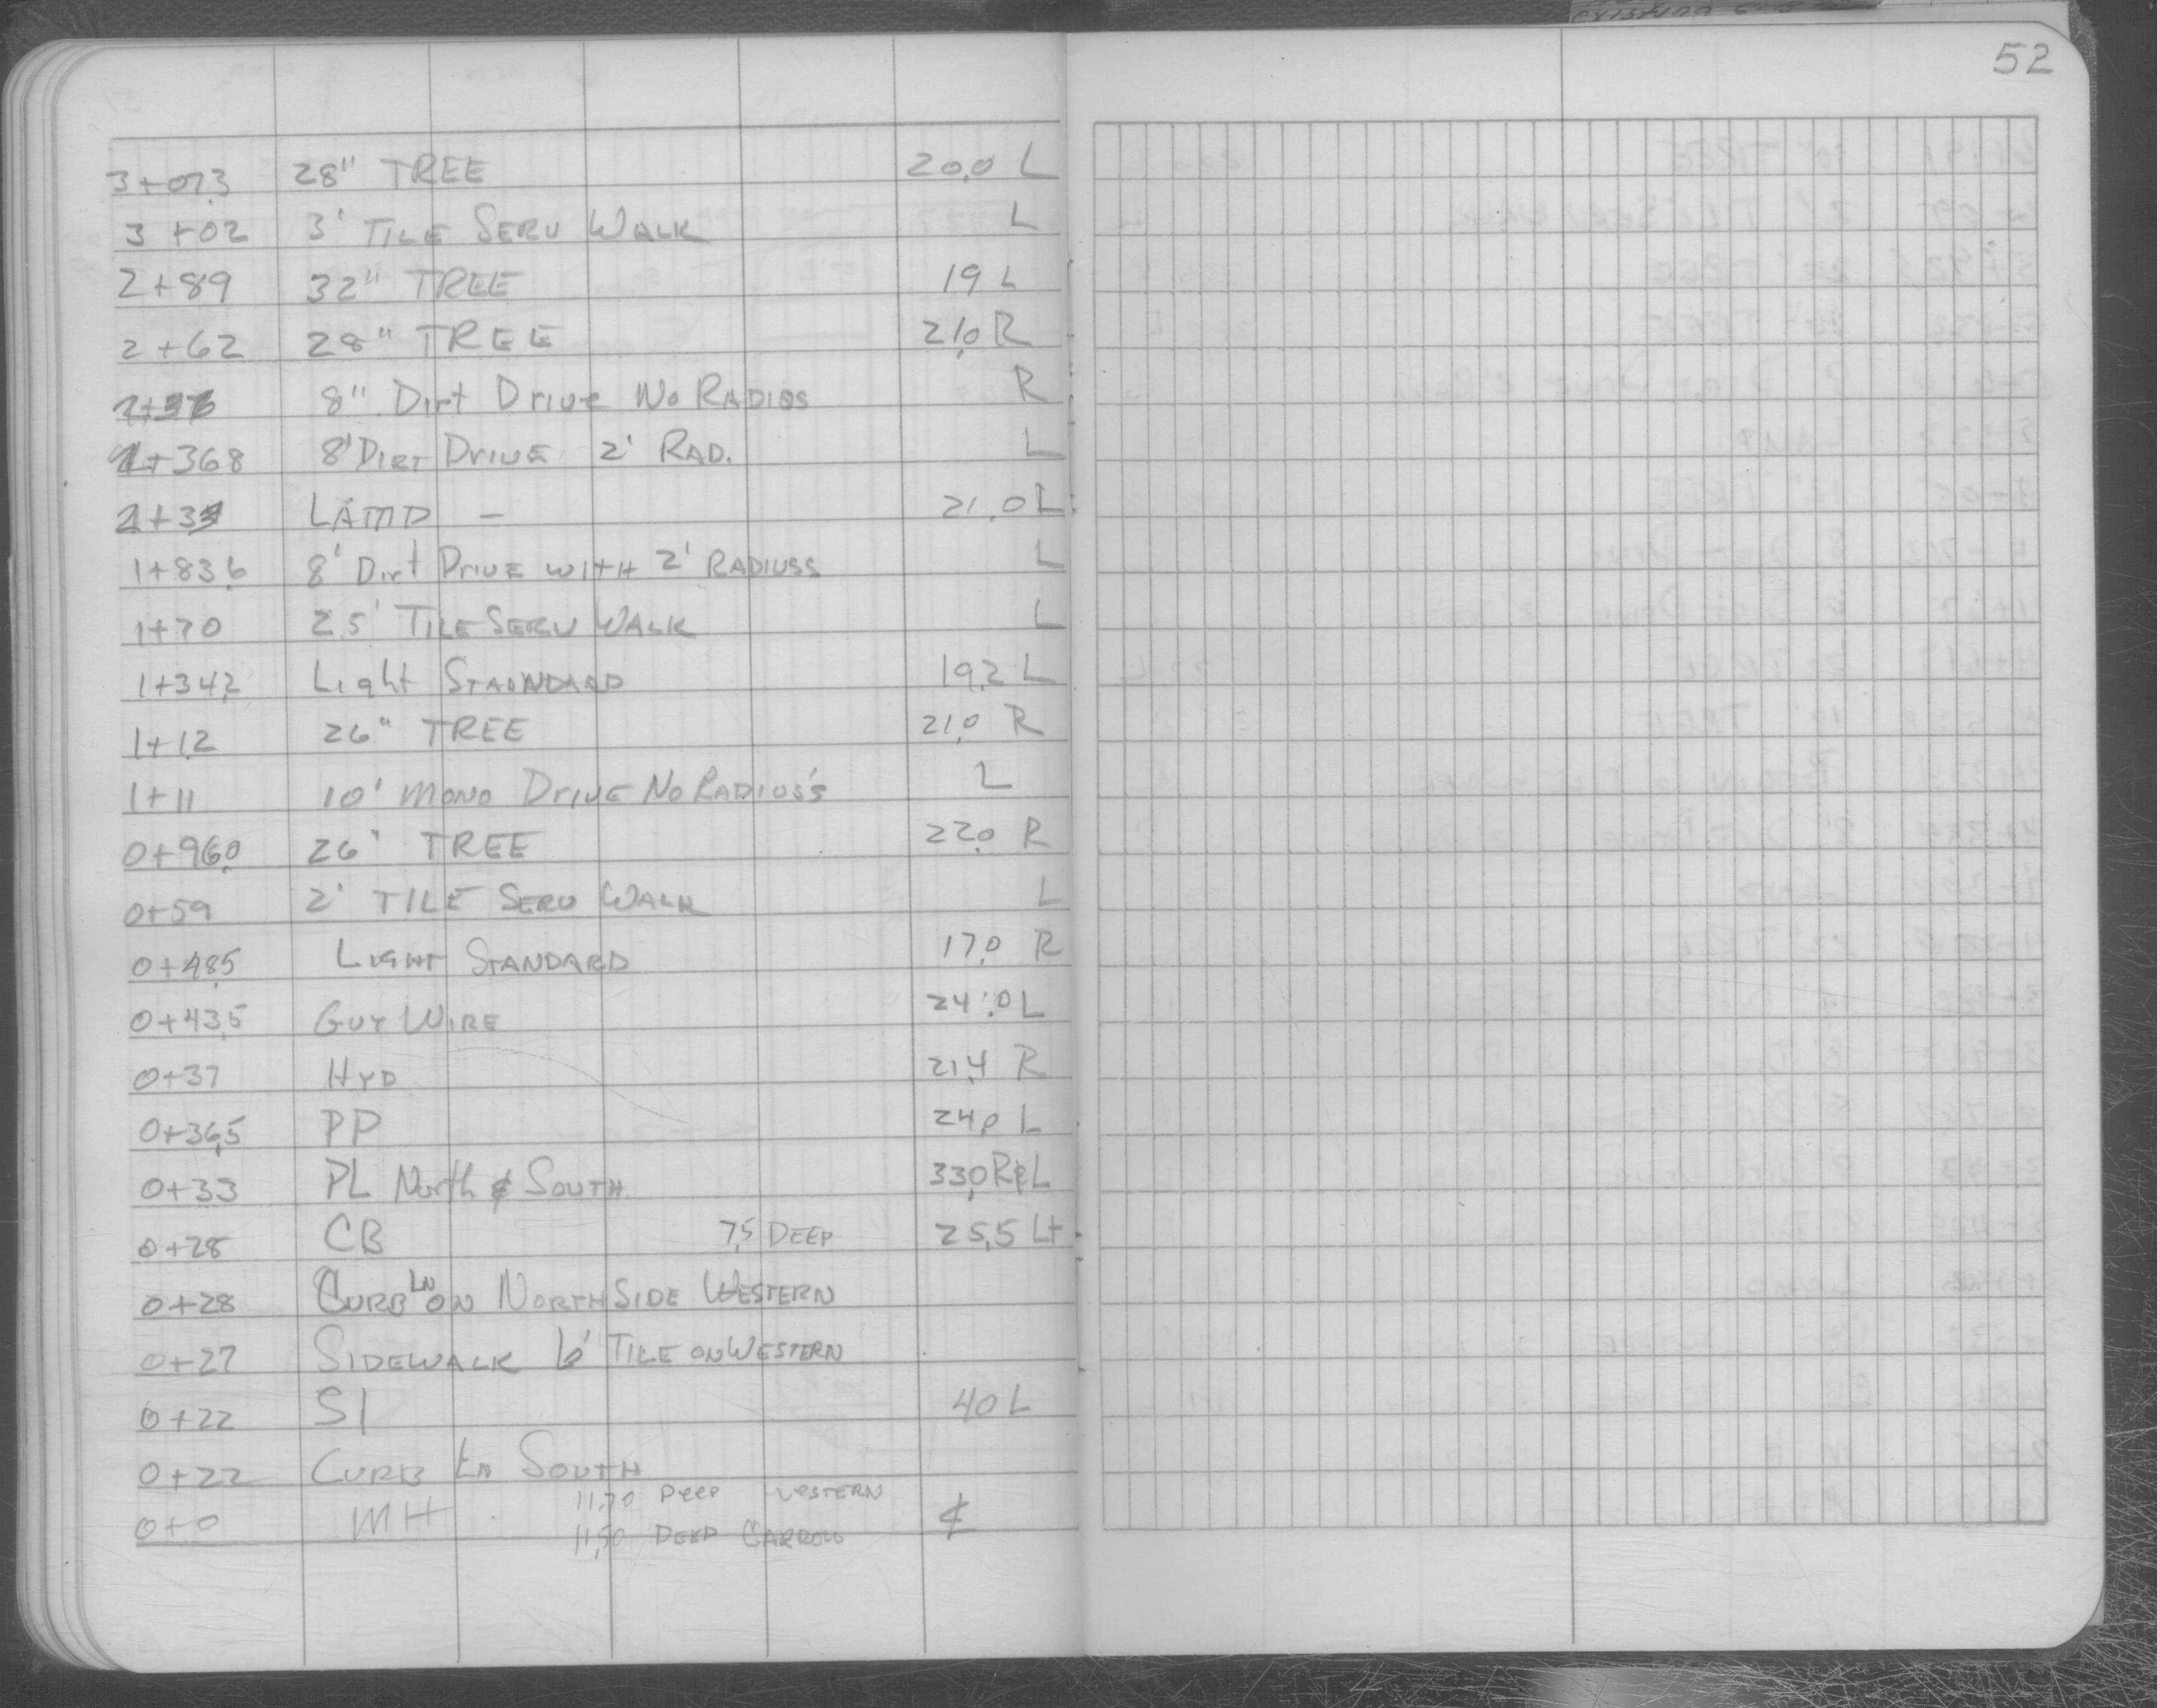 52
3+07.3 28" TREE 20.0 L
3+02 3' TILE SERV WALK L
2+89 32" TREE 19 L
2+62 28" TREE 21.0 R
8" Dirt Drive No RADIOS R
2+368 8' DIRT DRIVE 2' RAD. L
LAMP - 21.0 L
1+83.6 8' Dirt DRIVE WITH 2' RADIUSS L
1+70 2.5' TILE SERV WALK L
1+34.2 Light STANDARD 19.2 L
1+12 26" TREE 21.0 R
1+11 10' MONO DRIVE NO RADIUS'S L
0+96.0 26" TREE 22.0 R
0+59 2' TILE SERV WALK L
0+48.5 LIGHT STANDARD 17.0 R
0+43.5 GUY WIRE 24.0 L
0+37 HYD 21.4 R
0+36.5 PP 24.0 L
0+33 PL North & SOUTH 33.0 R&L
0+28 CB 7.5 DEEP 25.5 Lt
0+28 CURB LN ON NORTH SIDE WESTERN
0+27 SIDEWALK 6' TILE ON WESTERN
0+22 SI 40 L
0+22 CURB LN SOUTH
11.70 DEEP WESTERN
0+0 MH ₵
11.50 DEEP CARROLL